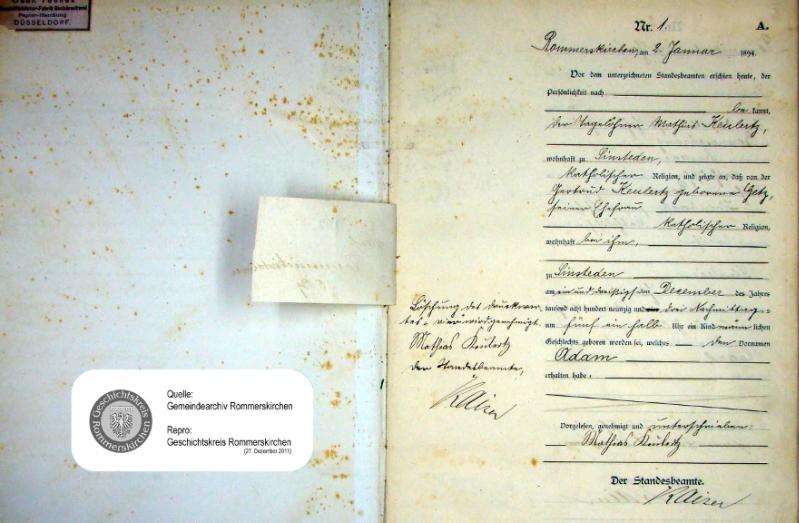 Papier-Handlung
DÜSSELDORF.
Quelle:
Gemeindearchiv Rommerskirchen
Repro:
Geschichtskreis Rommerskirchen
(27. Dezember 2011)
Geschichtskreis
Rommerskirchen
Nr. 1.
A.
Rommerskirchen, am 2. Januar 1894.
Vor dem unterzeichneten Standesbeamten erschien heute, der
Persönlichkeit nach
bekannt,
der Tagelöhner Mathias Keulertz,
wohnhaft zu Sinsteden,
katholischer Religion, und zeigte an, daß von der
Gertrud Keulertz geborene Getz,
seiner Ehefrau
katholischer Religion,
wohnhaft bei ihm,
zu Sinsteden
am ein und dreißigsten December des Jahres
tausend acht hundert neunzig und drei Nachmittags
um fünf ein halb Uhr ein Kind männlichen
Geschlechts geboren worden sei, welches den Vornamen
Adam
erhalten habe.
Vorgelesen, genehmigt und unterschrieben:
Mathias Keulertz
Der Standesbeamte.
Kaiser
Löschung des Druckwor-
tes "vier" wird genehmigt.
Mathias Keulertz
Der Standesbeamte,
Kaiser